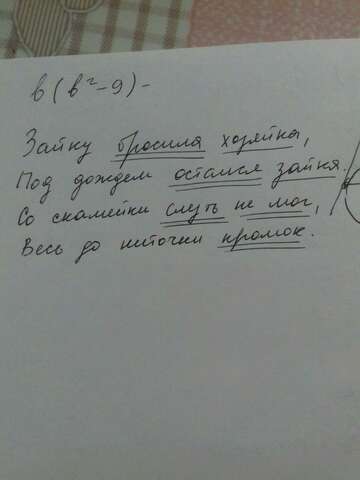 в(в²-9)-
Зайку бросила хозяйка,
Под дождем остался зайка.
Со скамейки слезть не мог,
Весь до ниточки промок.